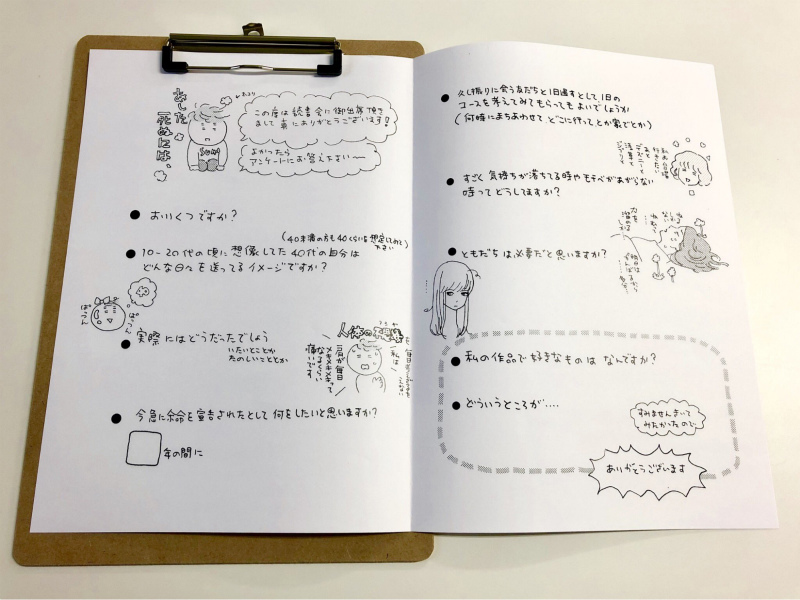 あした
死ぬには、
この度は読書会に御出席頂き
まして真にありがとうございます!
よかったら
アンケートにお答え下さい〜
● おいくつですか?
(40未満の方も40くらいを想定してみて下さい)
● 10-20代の頃に想像してた40代の自分は
どんな日々を送ってるイメージですか?
● 実際にはどうだったでしょう
いたいことか
たのしいこととか
人体の不思議
肩が毎日
メキメキメキって
なるくらい
痛いです
私は
● 今急に余命を宣告されたとして何をしたいと思いますか?
年の間に
● 久し振りに会う友だちと1日過すとして1日の
コースを考えてみてもらってもよいでしょうか
(何時にまちあわせて どこに行って とか家でとか)
私の台場
行きたい
ディズニーと
浅草と
● すごく気持ちが落ちてる時やモチベがあがらない
時ってどうしてますか?
● ともだちは必要だと思いますか?
● 私の作品で好きなものは なんですか?
● どういうところが‥‥
すみませんきいて
みたかったので
ありがとうございます